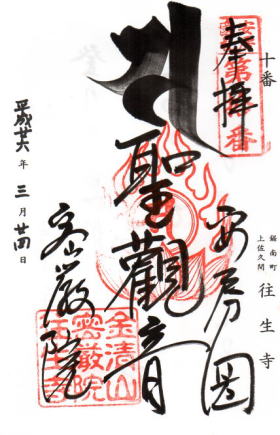 十番
奉拝
鋸南町
上佐久間
往生寺
安房國
聖觀音
密巌院
平成廿六年三月廿四日
金清山
密厳院
往生寺